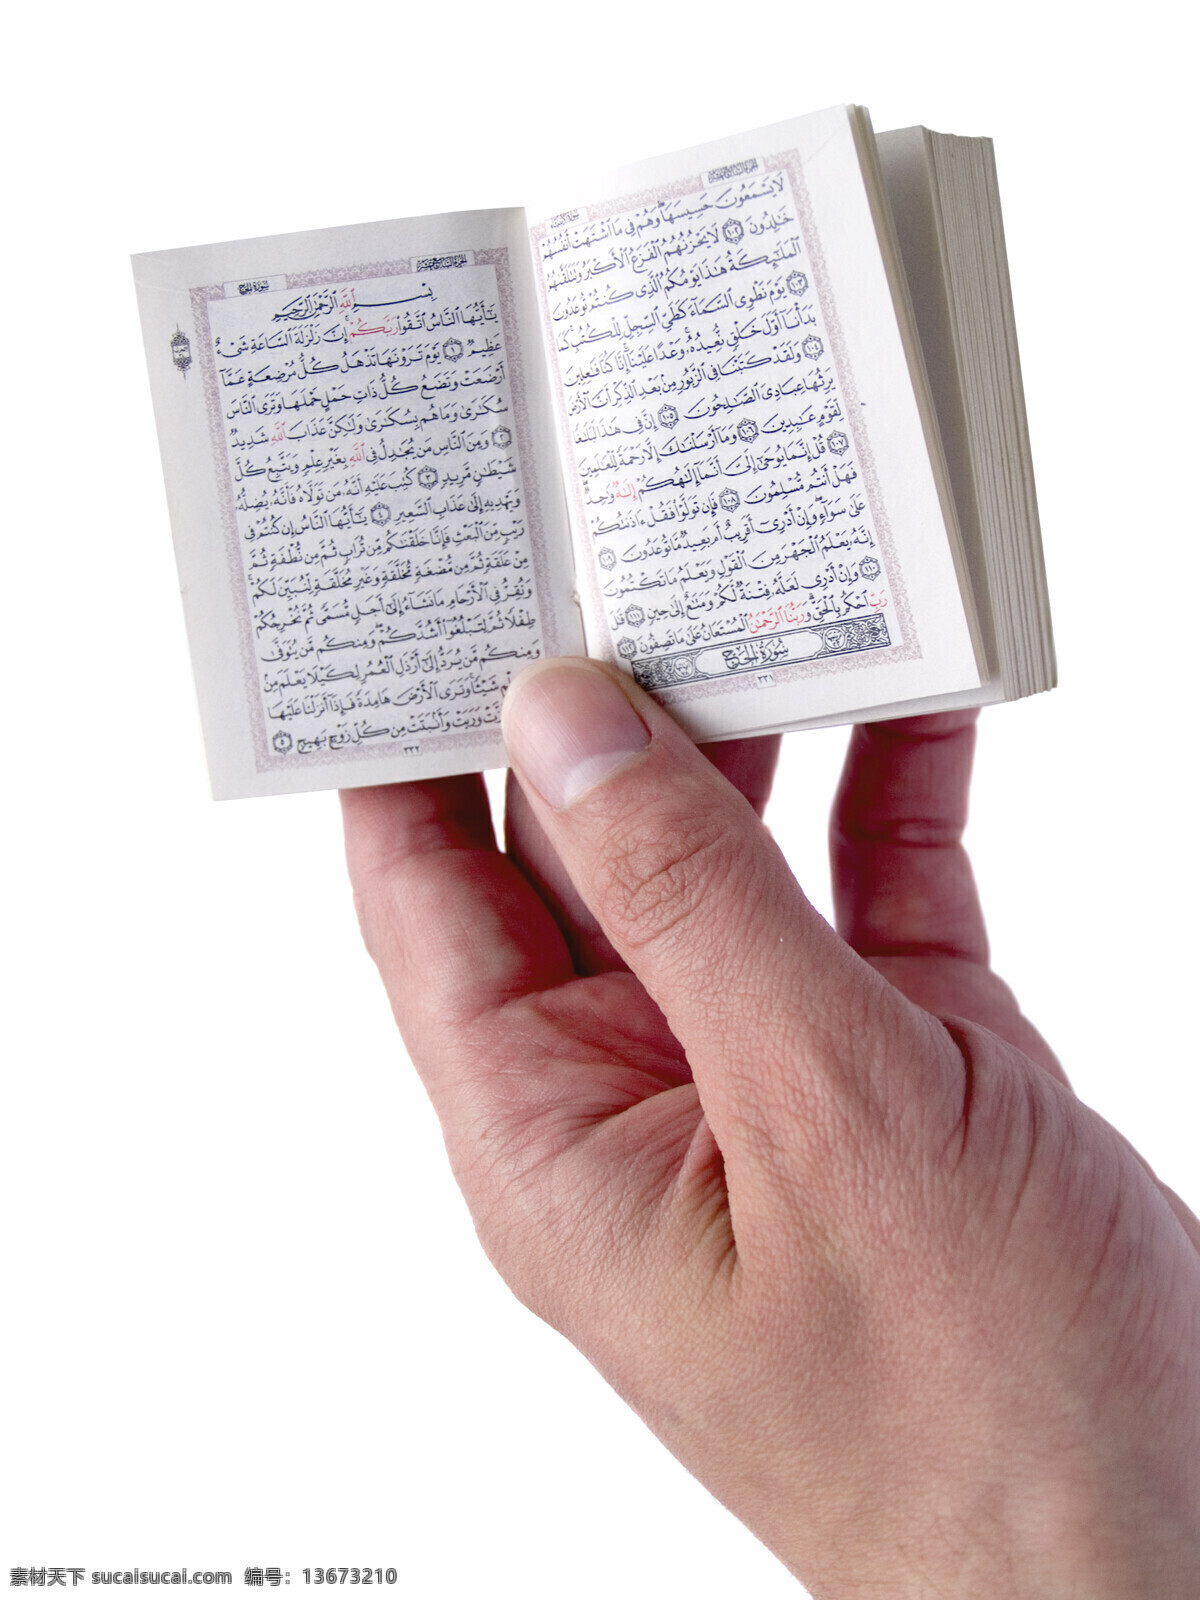 سورة الأنبياء
الجزء السابع عشر
لَا يَسْمَعُونَ حَسِيسَهَا وَهُمْ فِي مَا اشْتَهَتْ أَنفُسُهُمْ
خَالِدُونَ ١٠٢ لَا يَحْزُنُهُمُ الْفَزَعُ الْأَكْبَرُ وَتَتَلَقَّاهُمُ
الْمَلَائِكَةُ هَٰذَا يَوْمُكُمُ الَّذِي كُنتُمْ تُوعَدُونَ
١٠٣ يَوْمَ نَطْوِي السَّمَاءَ كَطَيِّ السِّجِلِّ لِلْكُتُبِ كَمَا
بَدَأْنَا أَوَّلَ خَلْقٍ نُّعِيدُهُ وَعْدًا عَلَيْنَا إِنَّا كُنَّا فَاعِلِينَ
١٠٤ وَلَقَدْ كَتَبْنَا فِي الزَّبُورِ مِن بَعْدِ الذِّكْرِ أَنَّ الْأَرْضَ
يَرِثُهَا عِبَادِيَ الصَّالِحُونَ ١٠٥ إِنَّ فِي هَٰذَا لَبَلَاغًا
لِّقَوْمٍ عَابِدِينَ ١٠٦ وَمَا أَرْسَلْنَاكَ إِلَّا رَحْمَةً لِّلْعَالَمِينَ
١٠٧ قُلْ إِنَّمَا يُوحَىٰ إِلَيَّ أَنَّمَا إِلَٰهُكُمْ إِلَٰهٌ وَاحِدٌ
فَهَلْ أَنتُم مُّسْلِمُونَ ١٠٨ فَإِن تَوَلَّوْا فَقُلْ آذَنتُكُمْ
عَلَىٰ سَوَاءٍ وَإِنْ أَدْرِي أَقَرِيبٌ أَم بَعِيدٌ مَّا تُوعَدُونَ ١٠٩
إِنَّهُ يَعْلَمُ الْجَهْرَ مِنَ الْقَوْلِ وَيَعْلَمُ مَا تَكْتُمُونَ
١١٠ وَإِنْ أَدْرِي لَعَلَّهُ فِتْنَةٌ لَّكُمْ وَمَتَاعٌ إِلَىٰ حِينٍ ١١١ قُلْ
رَبِّ احْكُم بِالْحَقِّ وَرَبُّنَا الرَّحْمَٰنُ الْمُسْتَعَانُ عَلَىٰ مَا تَصِفُونَ ١١٢
سُورَةُ الْحَجِّ
٣٣١
سورة الحج
الجزء السابع عشر
بِسْمِ اللَّهِ الرَّحْمَٰنِ الرَّحِيمِ
يَا أَيُّهَا النَّاسُ اتَّقُوا رَبَّكُمْ إِنَّ زَلْزَلَةَ السَّاعَةِ شَيْءٌ
عَظِيمٌ ١ يَوْمَ تَرَوْنَهَا تَذْهَلُ كُلُّ مُرْضِعَةٍ عَمَّا
أَرْضَعَتْ وَتَضَعُ كُلُّ ذَاتِ حَمْلٍ حَمْلَهَا وَتَرَى النَّاسَ
سُكَارَىٰ وَمَا هُم بِسُكَارَىٰ وَلَٰكِنَّ عَذَابَ اللَّهِ شَدِيدٌ
٢ وَمِنَ النَّاسِ مَن يُجَادِلُ فِي اللَّهِ بِغَيْرِ عِلْمٍ وَيَتَّبِعُ كُلَّ
شَيْطَانٍ مَّرِيدٍ ٣ كُتِبَ عَلَيْهِ أَنَّهُ مَن تَوَلَّاهُ فَأَنَّهُ يُضِلُّهُ
وَيَهْدِيهِ إِلَىٰ عَذَابِ السَّعِيرِ ٤ يَا أَيُّهَا النَّاسُ إِن كُنتُمْ فِي
رَيْبٍ مِّنَ الْبَعْثِ فَإِنَّا خَلَقْنَاكُم مِّن تُرَابٍ ثُمَّ مِن نُّطْفَةٍ ثُمَّ
مِنْ عَلَقَةٍ ثُمَّ مِن مُّضْغَةٍ مُّخَلَّقَةٍ وَغَيْرِ مُخَلَّقَةٍ لِّنُبَيِّنَ لَكُمْ
وَنُقِرُّ فِي الْأَرْحَامِ مَا نَشَاءُ إِلَىٰ أَجَلٍ مُّسَمًّى ثُمَّ نُخْرِجُكُمْ
طِفْلًا ثُمَّ لِتَبْلُغُوا أَشُدَّكُمْ وَمِنكُم مَّن يُتَوَفَّىٰ
وَمِنكُم مَّن يُرَدُّ إِلَىٰ أَرْذَلِ الْعُمُرِ لِكَيْلَا يَعْلَمَ مِن
شَيْئًا وَتَرَى الْأَرْضَ هَامِدَةً فَإِذَا أَنزَلْنَا عَلَيْهَا
وَرَبَتْ وَأَنبَتَتْ مِن كُلِّ زَوْجٍ بَهِيجٍ ٥
٣٣٢
素材天下 sucaisucai.com 编号：13673210